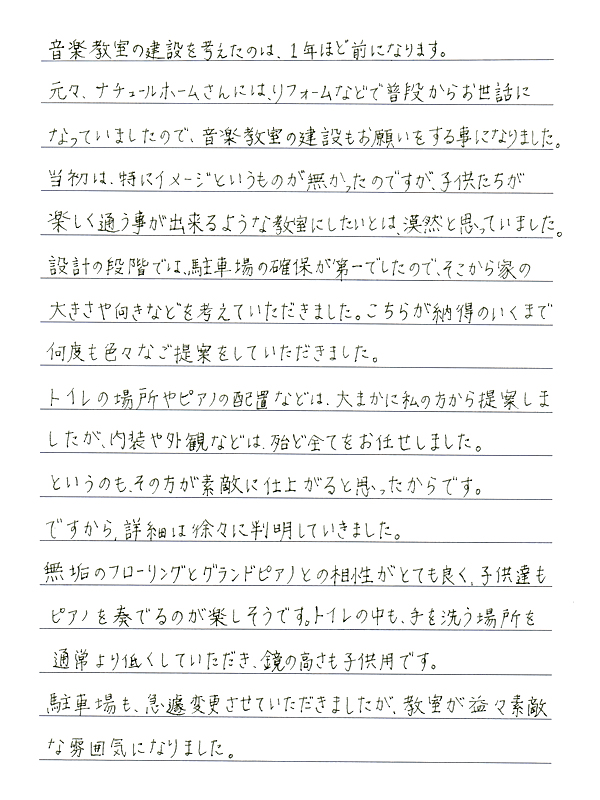 音楽教室の建設を考えたのは、1年ほど前になります。
元々、ナチュールホームさんには、リフォームなどで普段からお世話に
なっていましたので、音楽教室の建設もお願いをする事になりました。
当初は、特にイメージというものが無かったのですが、子供たちが
楽しく通う事が出来るような教室にしたいとは、漠然と思っていました。
設計の段階では、駐車場の確保が第一でしたので、そこから家の
大きさや向きなどを考えていただきました。こちらが納得のいくまで
何度も色々なご提案をしていただきました。
トイレの場所やピアノの配置などは、大まかに私の方から提案しま
したが、内装や外観などは、殆ど全てをお任せしました。
というのも、その方が素敵に仕上がると思ったからです。
ですから、詳細は徐々に判明していきました。
無垢のフローリングとグランドピアノとの相性がとても良く、子供達も
ピアノを奏でるのが楽しそうです。トイレの中も、手を洗う場所を
通常より低くしていただき、鏡の高さも子供用です。
駐車場も、急遽変更させていただきましたが、教室が益々素敵
な雰囲気になりました。